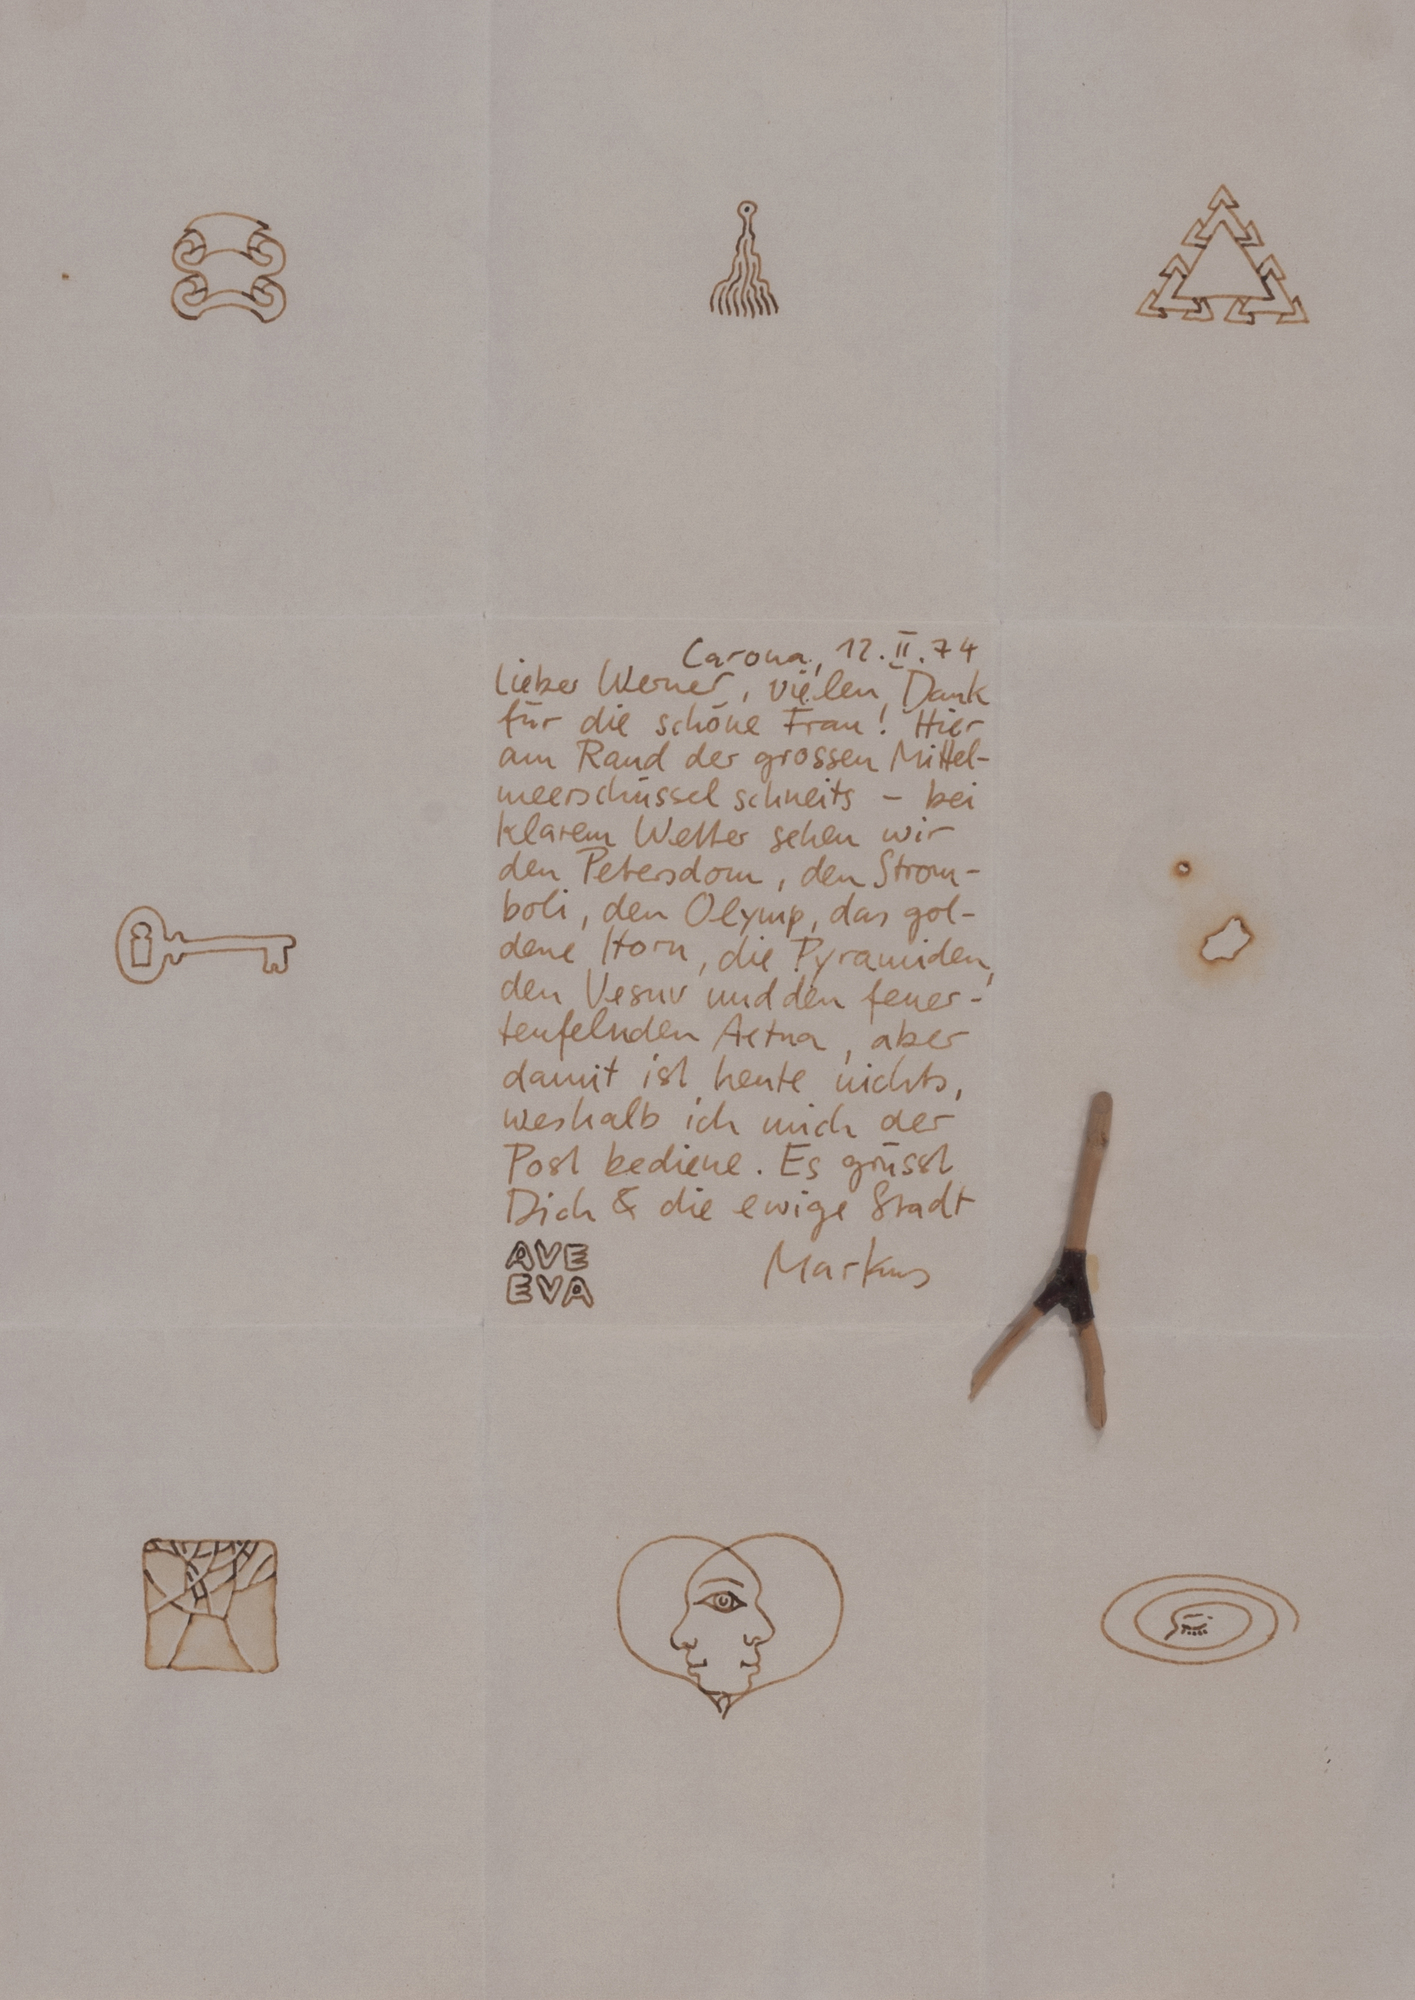 Carona, 12.II.74
Lieber Werner, vielen Dank
für die schöne Frau! Hier
am Rand der grossen Mittel-
meerschüssel schneits – bei
klarem Wetter sehen wir
den Petersdom, den Strom-
boli, den Olymp, das gol-
dene Horn, die Pyramiden,
den Vesuv und den feuer-
teufelnden Aetna, aber
damit ist heute nichts,
weshalb ich mich der
Post bediene. Es grüsst
Dich & die ewige Stadt
Markus
AVE
EVA